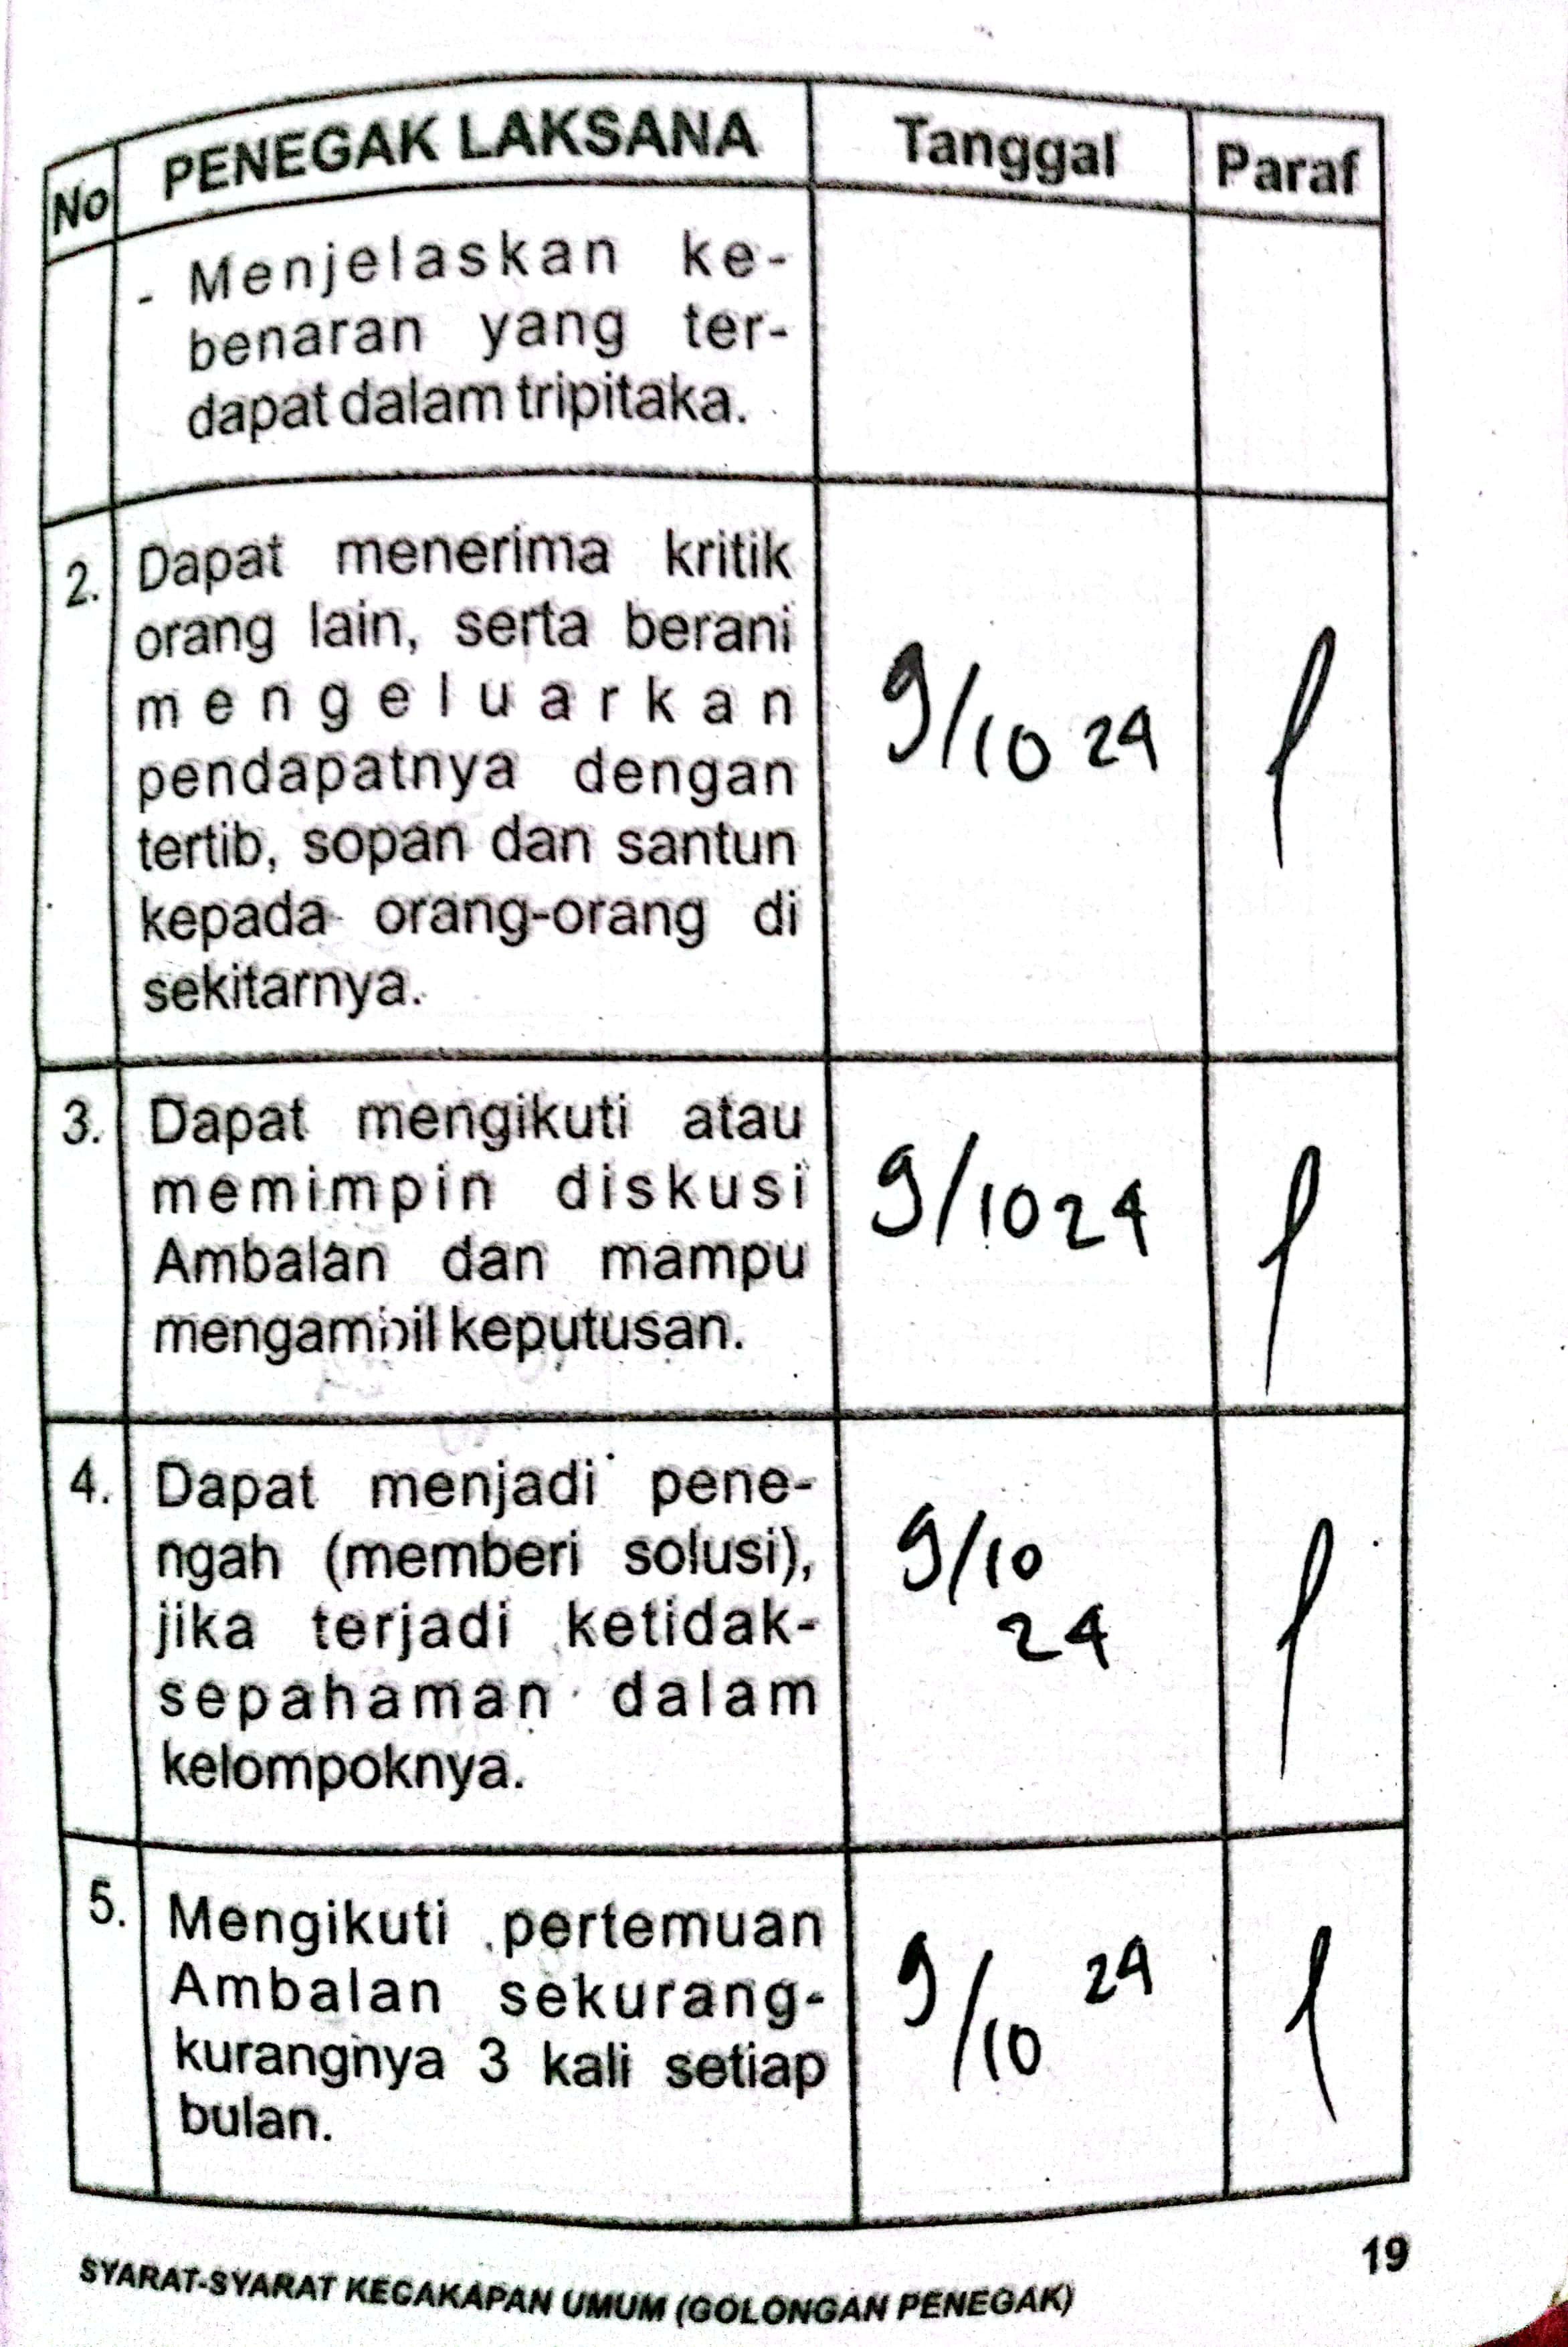 No PENEGAK LAKSANA Tanggal Paraf
- Menjelaskan ke-
benaran yang ter-
dapat dalam tripitaka.
2. Dapat menerima kritik
orang lain, serta berani
mengeluarkan
pendapatnya dengan
tertib, sopan dan santun
kepada orang-orang di
sekitarnya.
9/10 24
3. Dapat mengikuti atau
memimpin diskusi
Ambalan dan mampu
mengambil keputusan.
9/10 24
4. Dapat menjadi pene-
ngah (memberi solusi),
jika terjadi ketidak-
sepahaman dalam
kelompoknya.
9/10
24
5. Mengikuti pertemuan
Ambalan sekurang-
kurangnya 3 kali setiap
bulan.
9/10 24
19
SYARAT-SYARAT KECAKAPAN UMUM (GOLONGAN PENEGAK)